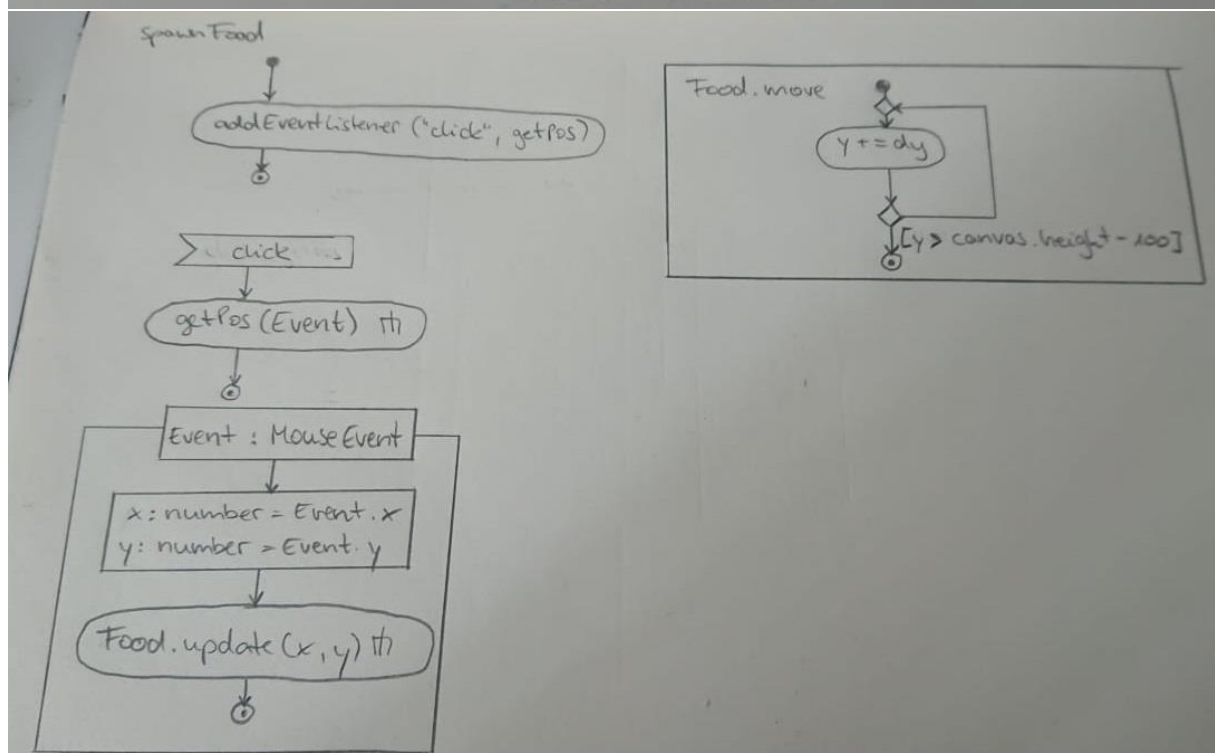 spawnFood
addEventListener ("click", getPos)
click
getPos (Event)
Event : MouseEvent
x: number = Event.x
y: number = Event.y
Food.update (x, y)
Food.move
y += dy
[y > canvas.height - 100]